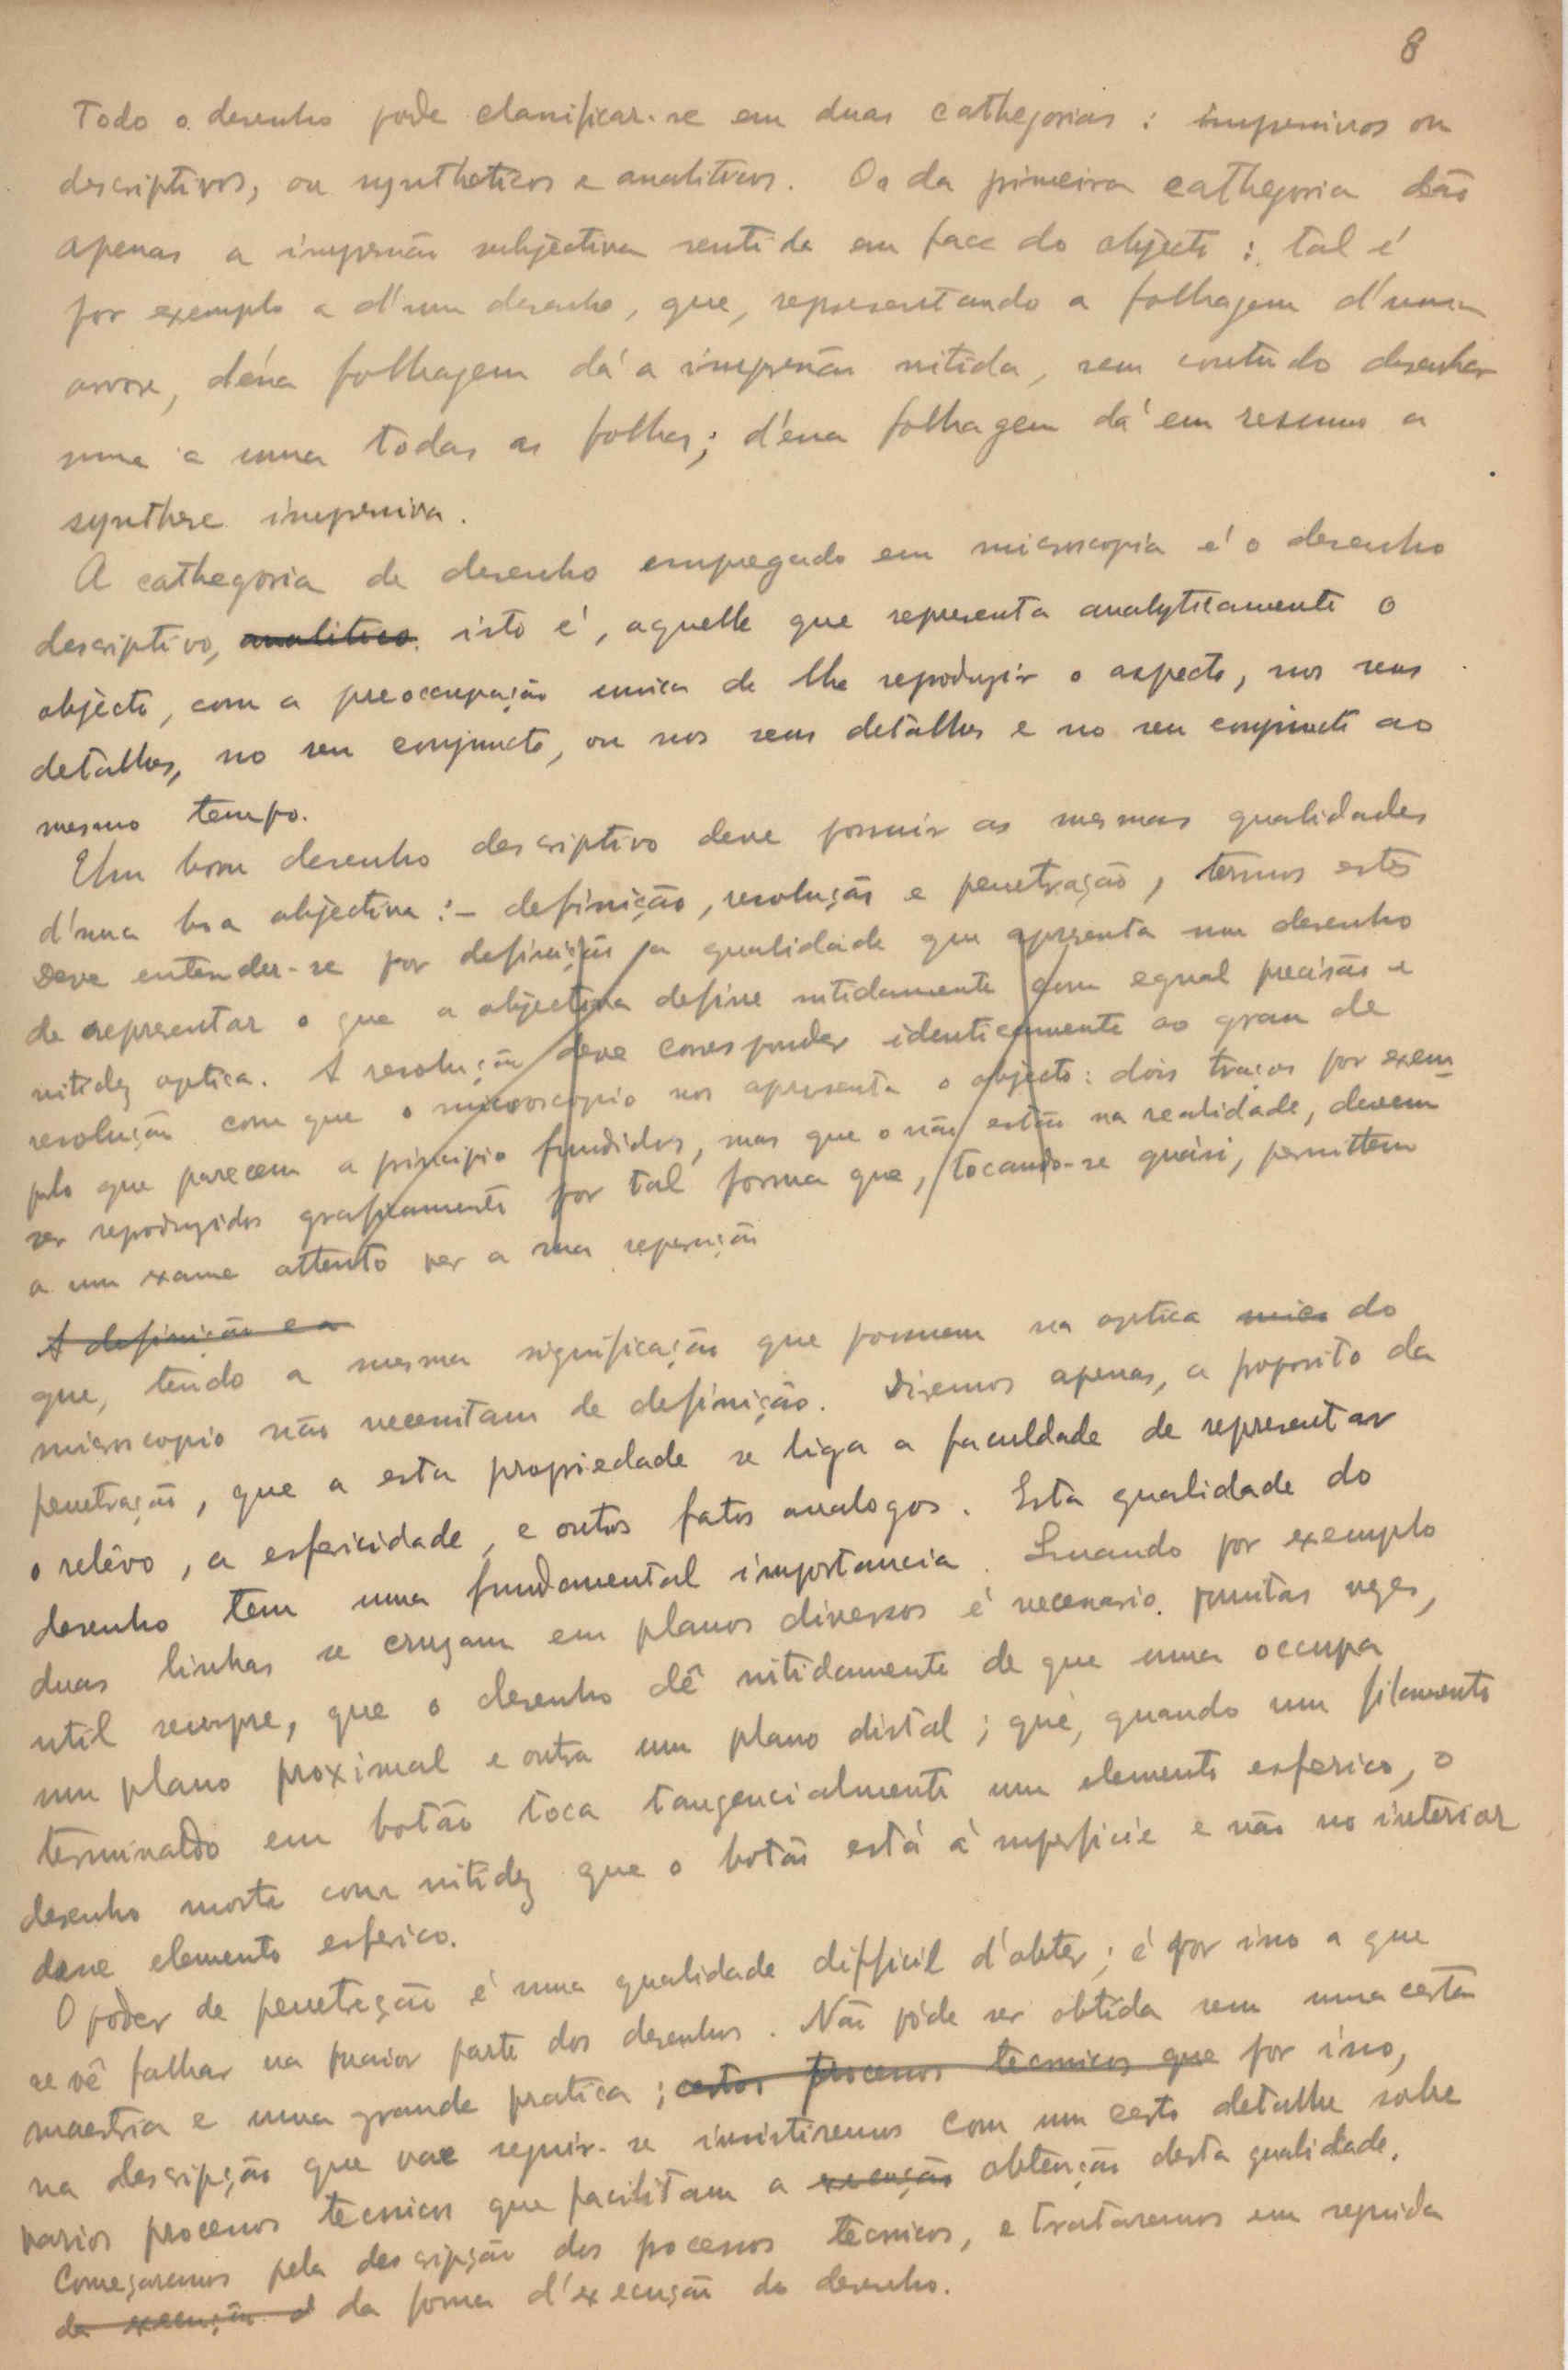 8
Todo o desenho pode classificar-se em duas cathegorias : impressivos ou
descriptivos, ou syntheticos e analiticos. Os da primeira cathegoria dão
apenas a impressão subjectiva sentida em face do objecto : tal é
por exemplo a d'um desenho, que, representando a folhagem d'uma
arvore, d'essa folhagem dá a impressão nitida, sem contudo desenhar
uma a uma todas as folhas; d'essa folhagem dá em resumo a
synthese impressiva.
A cathegoria de desenho empregado em microscopia é o desenho
descriptivo, analitico. isto é, aquelle que representa analyticamente o
objecto, com a preoccupação unica de lhe reproduzir o aspecto, nos seus
detalhes, no seu conjuncto, ou nos seus detalhes e no seu conjuncto ao
mesmo tempo.
Um bom desenho descriptivo deve possuir as mesmas qualidades
d'uma boa objectiva :- definição, resolução e penetração, termos estes
Deve entender-se por definição a qualidade que apresenta um desenho
de representar o que a objectiva define nitidamente com egual precisão e
nitidez optica. A resolução deve corresponder identicamente ao grau de
resolução com que o microscopio nos apresenta o objecto: dois traços por exem
plo que parecem a principio fundidos, mas que o não estão na realidade, devem
ser reproduzidos graficamente por tal forma que, tocando-se quasi, permittem
a um exame attento ver a sua separação
A definição e a
que, tendo a mesma significação que possuem na optica mics do
microscopio não necessitam de definição. Diremos apenas, a proposito da
penetração, que a esta propriedade se liga a faculdade de representar
o relêvo, a esfericidade, e outros fatos analogos. Esta qualidade do
desenho tem uma fundamental importancia. Quando por exemplo
duas linhas se cruzam em planos diversos é necessario muitas vezes,
util sempre, que o desenho dê nitidamente de que uma occupa
um plano proximal e outra um plano distal ; que, quando um filamento
terminado em botão toca tangencialmente um elemento esferico, o
desenho mostre com nitidez que o botão está á superficie e não no interior
desse elemento esferico.
O poder de penetração é uma qualidade difficil d'obter ; é por isso a que
se vê falhar na maior parte dos desenhos. Não póde ser obtida sem uma certa
maestria e uma grande pratica ; certos processos tecnicos que por isso,
na descripção que vae seguir-se insistiremos com um certo detalhe sobre
varios processos tecnicos que facilitam a execução obtenção desta qualidade.
Começaremos pela descripção dos processos tecnicos, e trataremos em seguida
da execução d da forma d'execução do desenho.